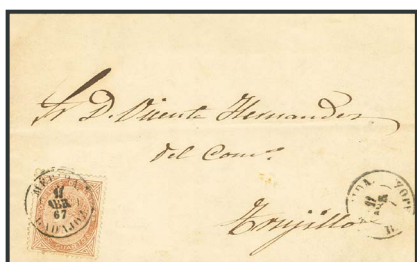 Sr D. Vicente Hernandez
del Comº
Trujillo
11
67
BADAJOZ